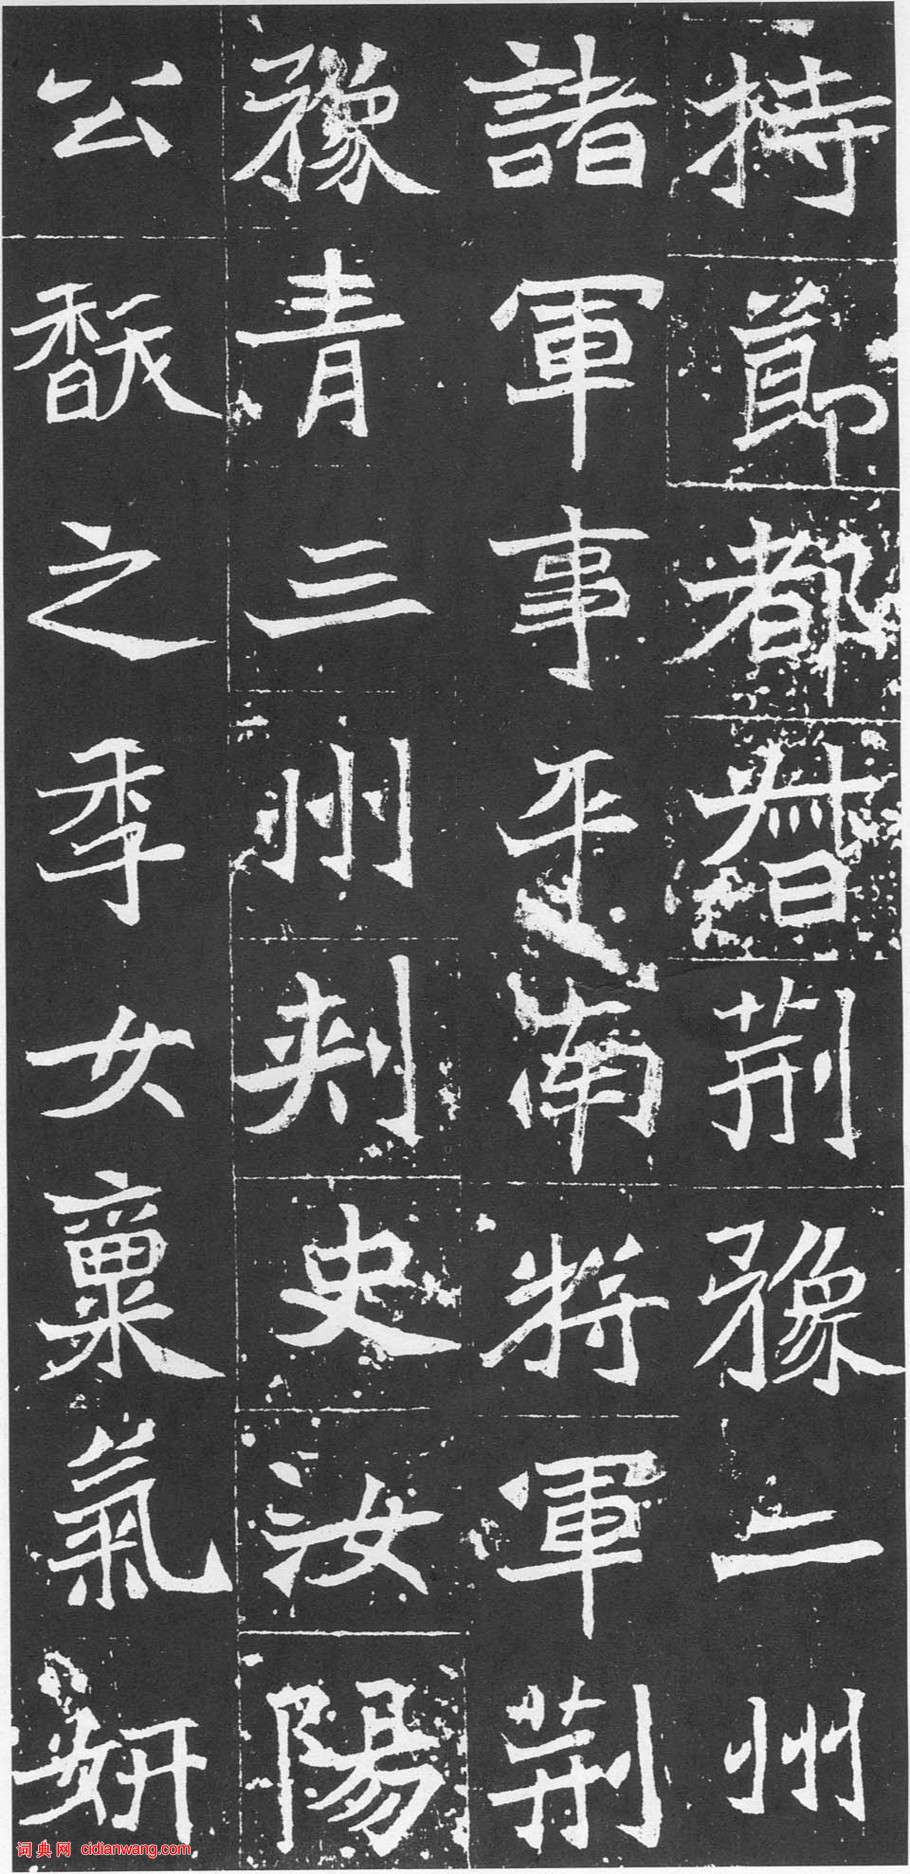 持節都督荊豫二州
諸軍事平南將軍荊
豫青三州刺史汝陽
公馛之季女稟氣妍
词典网 cidianwang.com